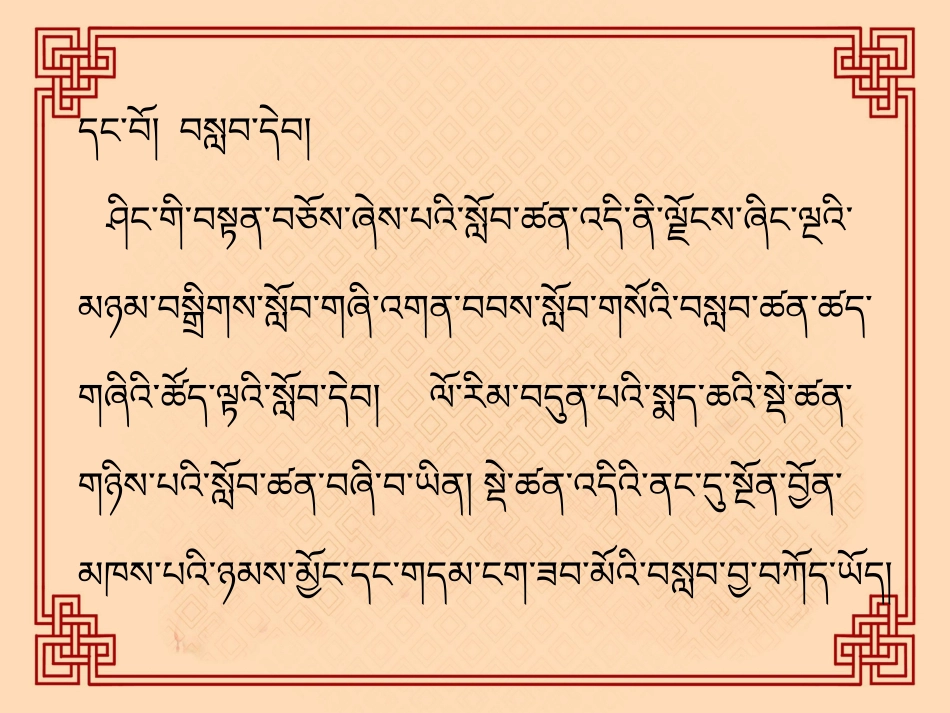 དང་བོ།  བསླབ་དེབ།
ཤིང་གི་བསྟན་བཅོས་ཞེས་པའི་སློབ་ཚན་འདི་ནི་ལྗོངས་ཞིང་ལྔའི་
མཉམ་བསྒྲིགས་སློབ་གཞི་འགན་བབས་སློབ་གསོའི་བསླབ་ཚན་ཚད་
གཞིའི་ཚོད་ལྟའི་སློབ་དེབ།  ལོ་རིམ་བདུན་པའི་སྨད་ཆའི་སྡེ་ཚན་
གཉིས་པའི་སློབ་ཚན་བཞི་བ་ཡིན། སྡེ་ཚན་འདིའི་ནང་དུ་སྔོན་བྱོན་
མཁས་པའི་ཉམས་མྱོང་དང་གདམ་ངག་ཟབ་མོའི་བསླབ་བྱ་བཀོད་ཡོད།